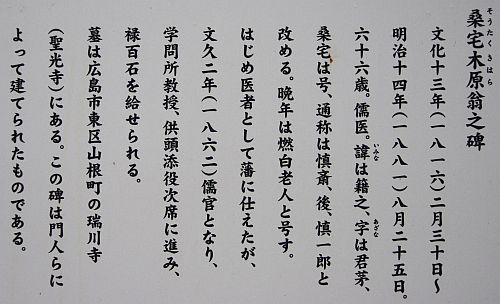 桑宅木原翁之碑
そうたく きはら
文化十三年(一八一六)二月三十日~
明治十四年(一八八一)八月二十五日。
六十六歳。儒医。諱は籍之、字は君茅、
いみな あざな
桑宅は号、通称は慎斎、後、慎一郎と
改める。晩年は燃白老人と号す。
はじめ医者として藩に仕えたが、
文久二年(一八六二)儒官となり、
学問所教授、供頭添役次席に進み、
禄百石を給せられる。
墓は広島市東区山根町の瑞川寺
(聖光寺)にある。この碑は門人らに
よって建てられたものである。